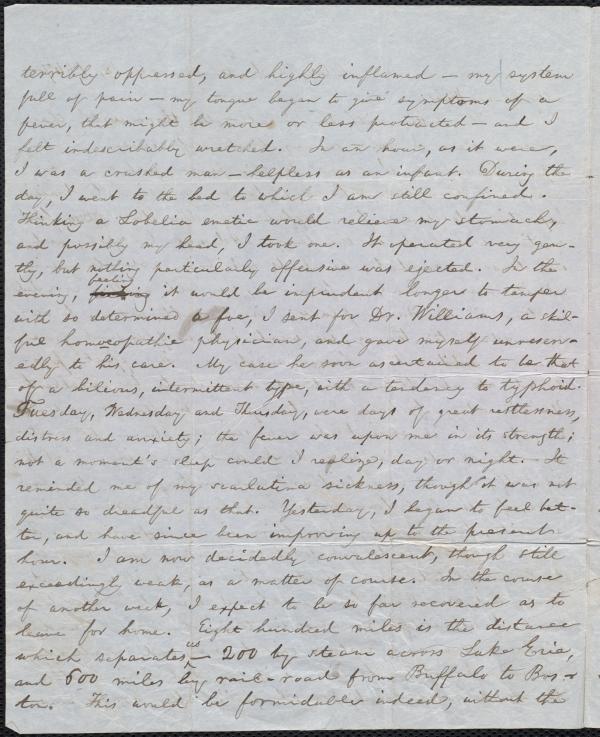 terribly oppressed, and highly inflamed — my system
full of pain — my tongue began to give symptoms of a
fever, that might be more or less protracted — and I
felt indescribably wretched. In an hour, as it were,
I was a crushed man — helpless as an infant. During the
day, I went to the bed to which I am still confined.
Thinking a Lobelia emetic would relieve my stomach,
and possibly my head, I took one. It operated very gen-
tly, but nothing particularly offensive was ejected. In the
feeling
evening, it would be imprudent longer to tamper
with so determined a foe, I sent for Dr. Williams, a skil-
ful homoeopathic physician, and gave myself unreser-
vedly to his care. My case he soon ascertained to be that
of a bilious, intermittent type, with a tendency to typhoid.
Tuesday, Wednesday and Thursday, were days of great restlessness,
distress and anxiety; the fever was upon me in its strength;
not a moment's sleep could I realize, day or night. It
reminded me of my scarlatina sickness, though it was not
quite so dreadful as that. Yesterday, I began to feel bet-
ter, and have since been improving up to the present
hour. I am now decidedly convalescent, though still
exceedingly weak, as a matter of course. In the course
of another week, I expect to be so far recovered as to
leave for home. Eight hundred miles is the distance
which separates us — 200 by steam across Lake Erie,
and 600 miles by rail-road from Buffalo to Bos-
ton. This would be formidable indeed, without the